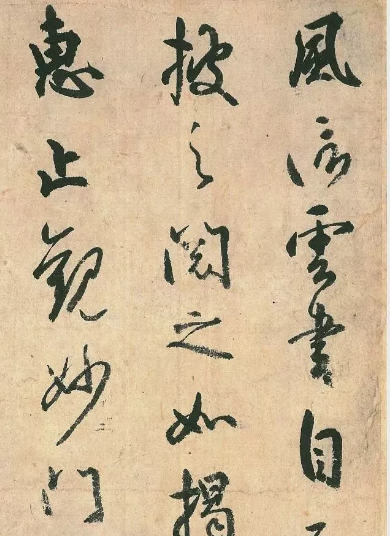 風信雲書自
披之閱之如揭
惠止觀妙門